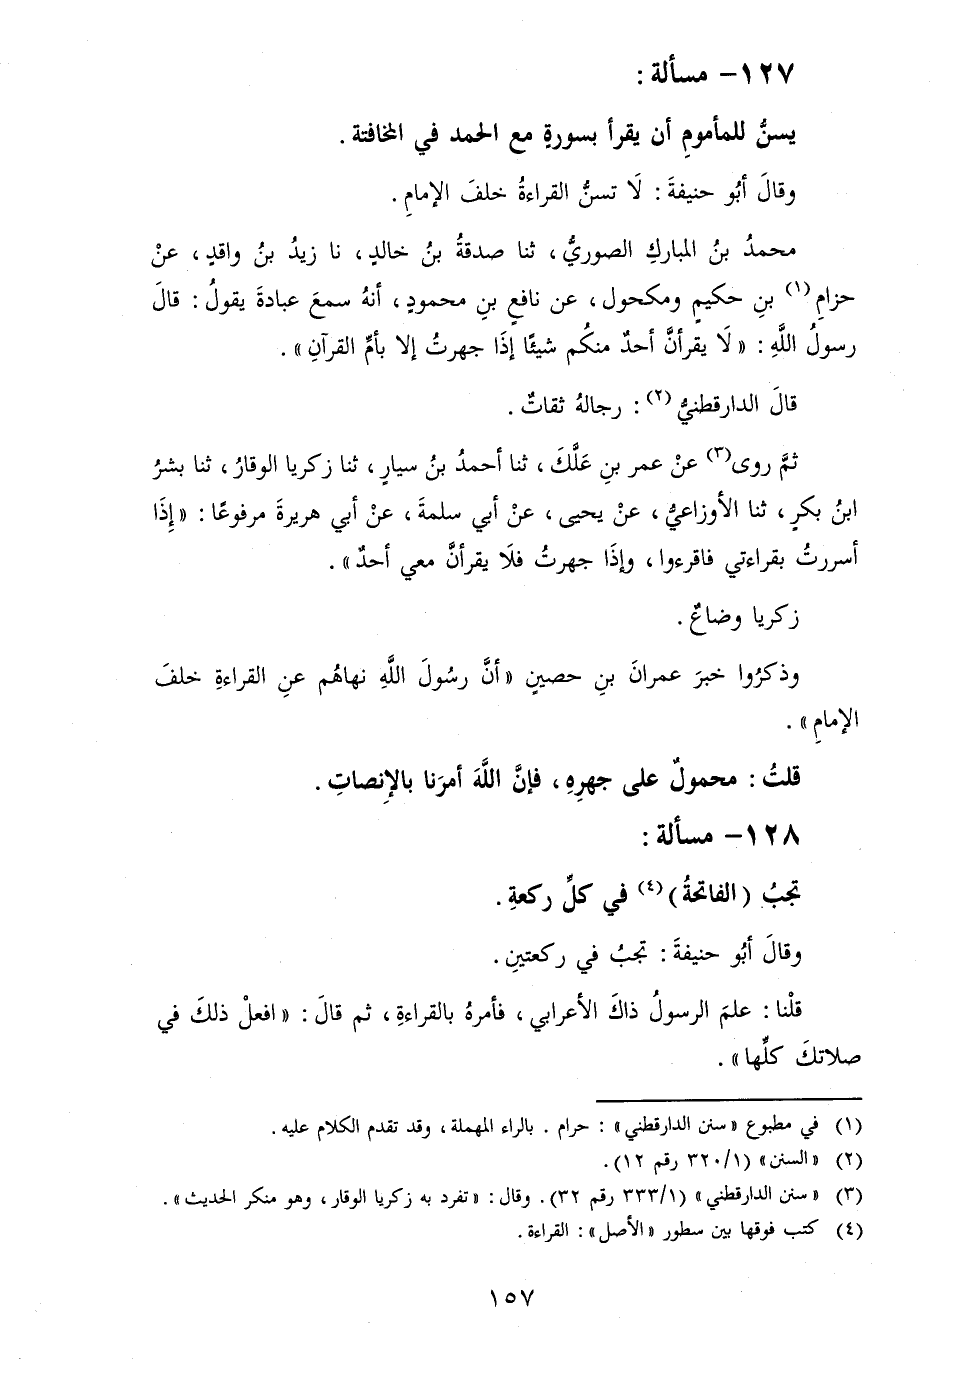 ١٢٧- مسألة :
يسنُّ للمأمومِ أن يقرأ بسورةٍ مع الحمد في المخافتة .
وقالَ أبُو حنيفةَ : لَا تسنُّ القراءةُ خلفَ الإمامِ .
محمدُ بنُ المباركِ الصوريُّ ، ثنا صدقةُ بنُ خالدٍ ، نا زيدُ بنُ واقدٍ ، عنْ
حزامِ (١) بنِ حكيمٍ ومكحول ، عن نافعٍ بنِ محمودٍ ، أنهُ سمعَ عبادةَ يقولُ : قالَ
رسولُ اللَّهِ : « لَا يقرأنَّ أحدٌ منكُم شيئًا إذَا جهرتُ إلا بأمِّ القرآنِ » .
قالَ الدارقطنيُّ (٢) : رجالهُ ثقاتٌ .
ثمَّ روى (٣) عنْ عمر بنِ عَلَّكَ ، ثنا أحمدُ بنُ سيارٍ ، ثنا زكريا الوقارُ ، ثنا بشرُ
ابنُ بكرٍ ، ثنا الأوزاعيُّ ، عنْ يحيى ، عنْ أبي سلمةَ ، عنْ أبي هريرةَ مرفوعًا : « إِذَا
أسررتُ بقراءتي فاقرءوا ، وإذَا جهرتُ فلَا يقرأنَّ معي أحدٌ » .
زكريا وضاعٌ .
وذكرُوا خبرَ عمرانَ بنِ حصينٍ « أنَّ رسُولَ اللَّهِ نهاهُم عنِ القراءةِ خلفَ
الإمامِ » .
قلتُ : محمولٌ على جهرِهِ ، فإنَّ اللَّهَ أمرَنا بالإنصاتِ .
١٢٨- مسألة :
تجبُ (الفاتحةُ) (٤) في كلِّ ركعةِ .
وقالَ أبُو حنيفةَ : تجبُ في ركعتينِ .
قلْنا : علمَ الرسولُ ذاكَ الأعرابي ، فأمرهُ بالقراءةِ ، ثم قالَ : « افعلْ ذلكَ في
صلاتكَ كلِّها » .
(١) في مطبوع « سنن الدارقطني » : حرام . بالراء المهملة ، وقد تقدم الكلام عليه .
(٢) « السنن » (١/ ٣٢٠ رقم ١٢) .
(٣) « سنن الدارقطني » (١/ ٣٣٣ رقم ٣٢) . وقال : « تفرد به زكريا الوقار ، وهو منكر الحديث » .
(٤) كتب فوقها بين سطور « الأصل » : القراءة .
١٥٧